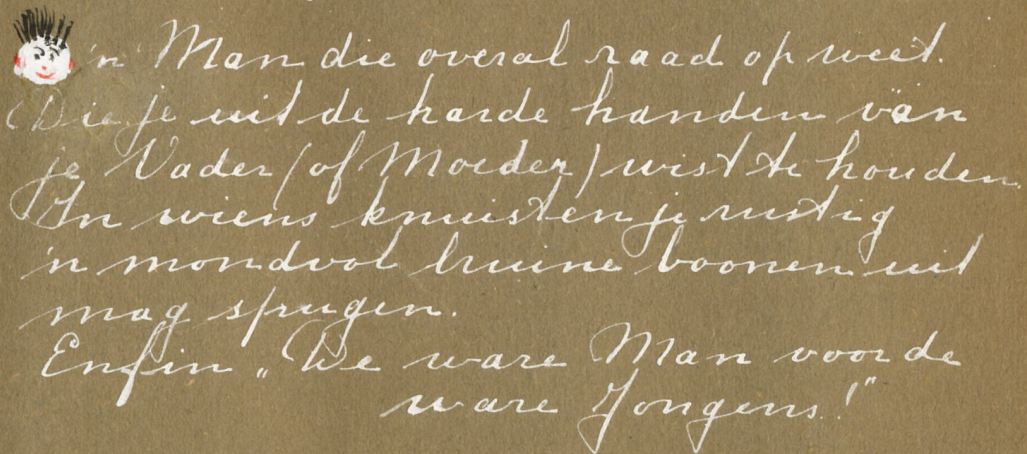 'n Man die overal raad op weet.
Die je uit de harde handen van
je Vader (of Moeder) wist te houden.
In wiens knuisten je rustig
'n mondvol bruine boonen uit
mag spugen.
Enfin „De ware Man voor de
ware Jongens!"